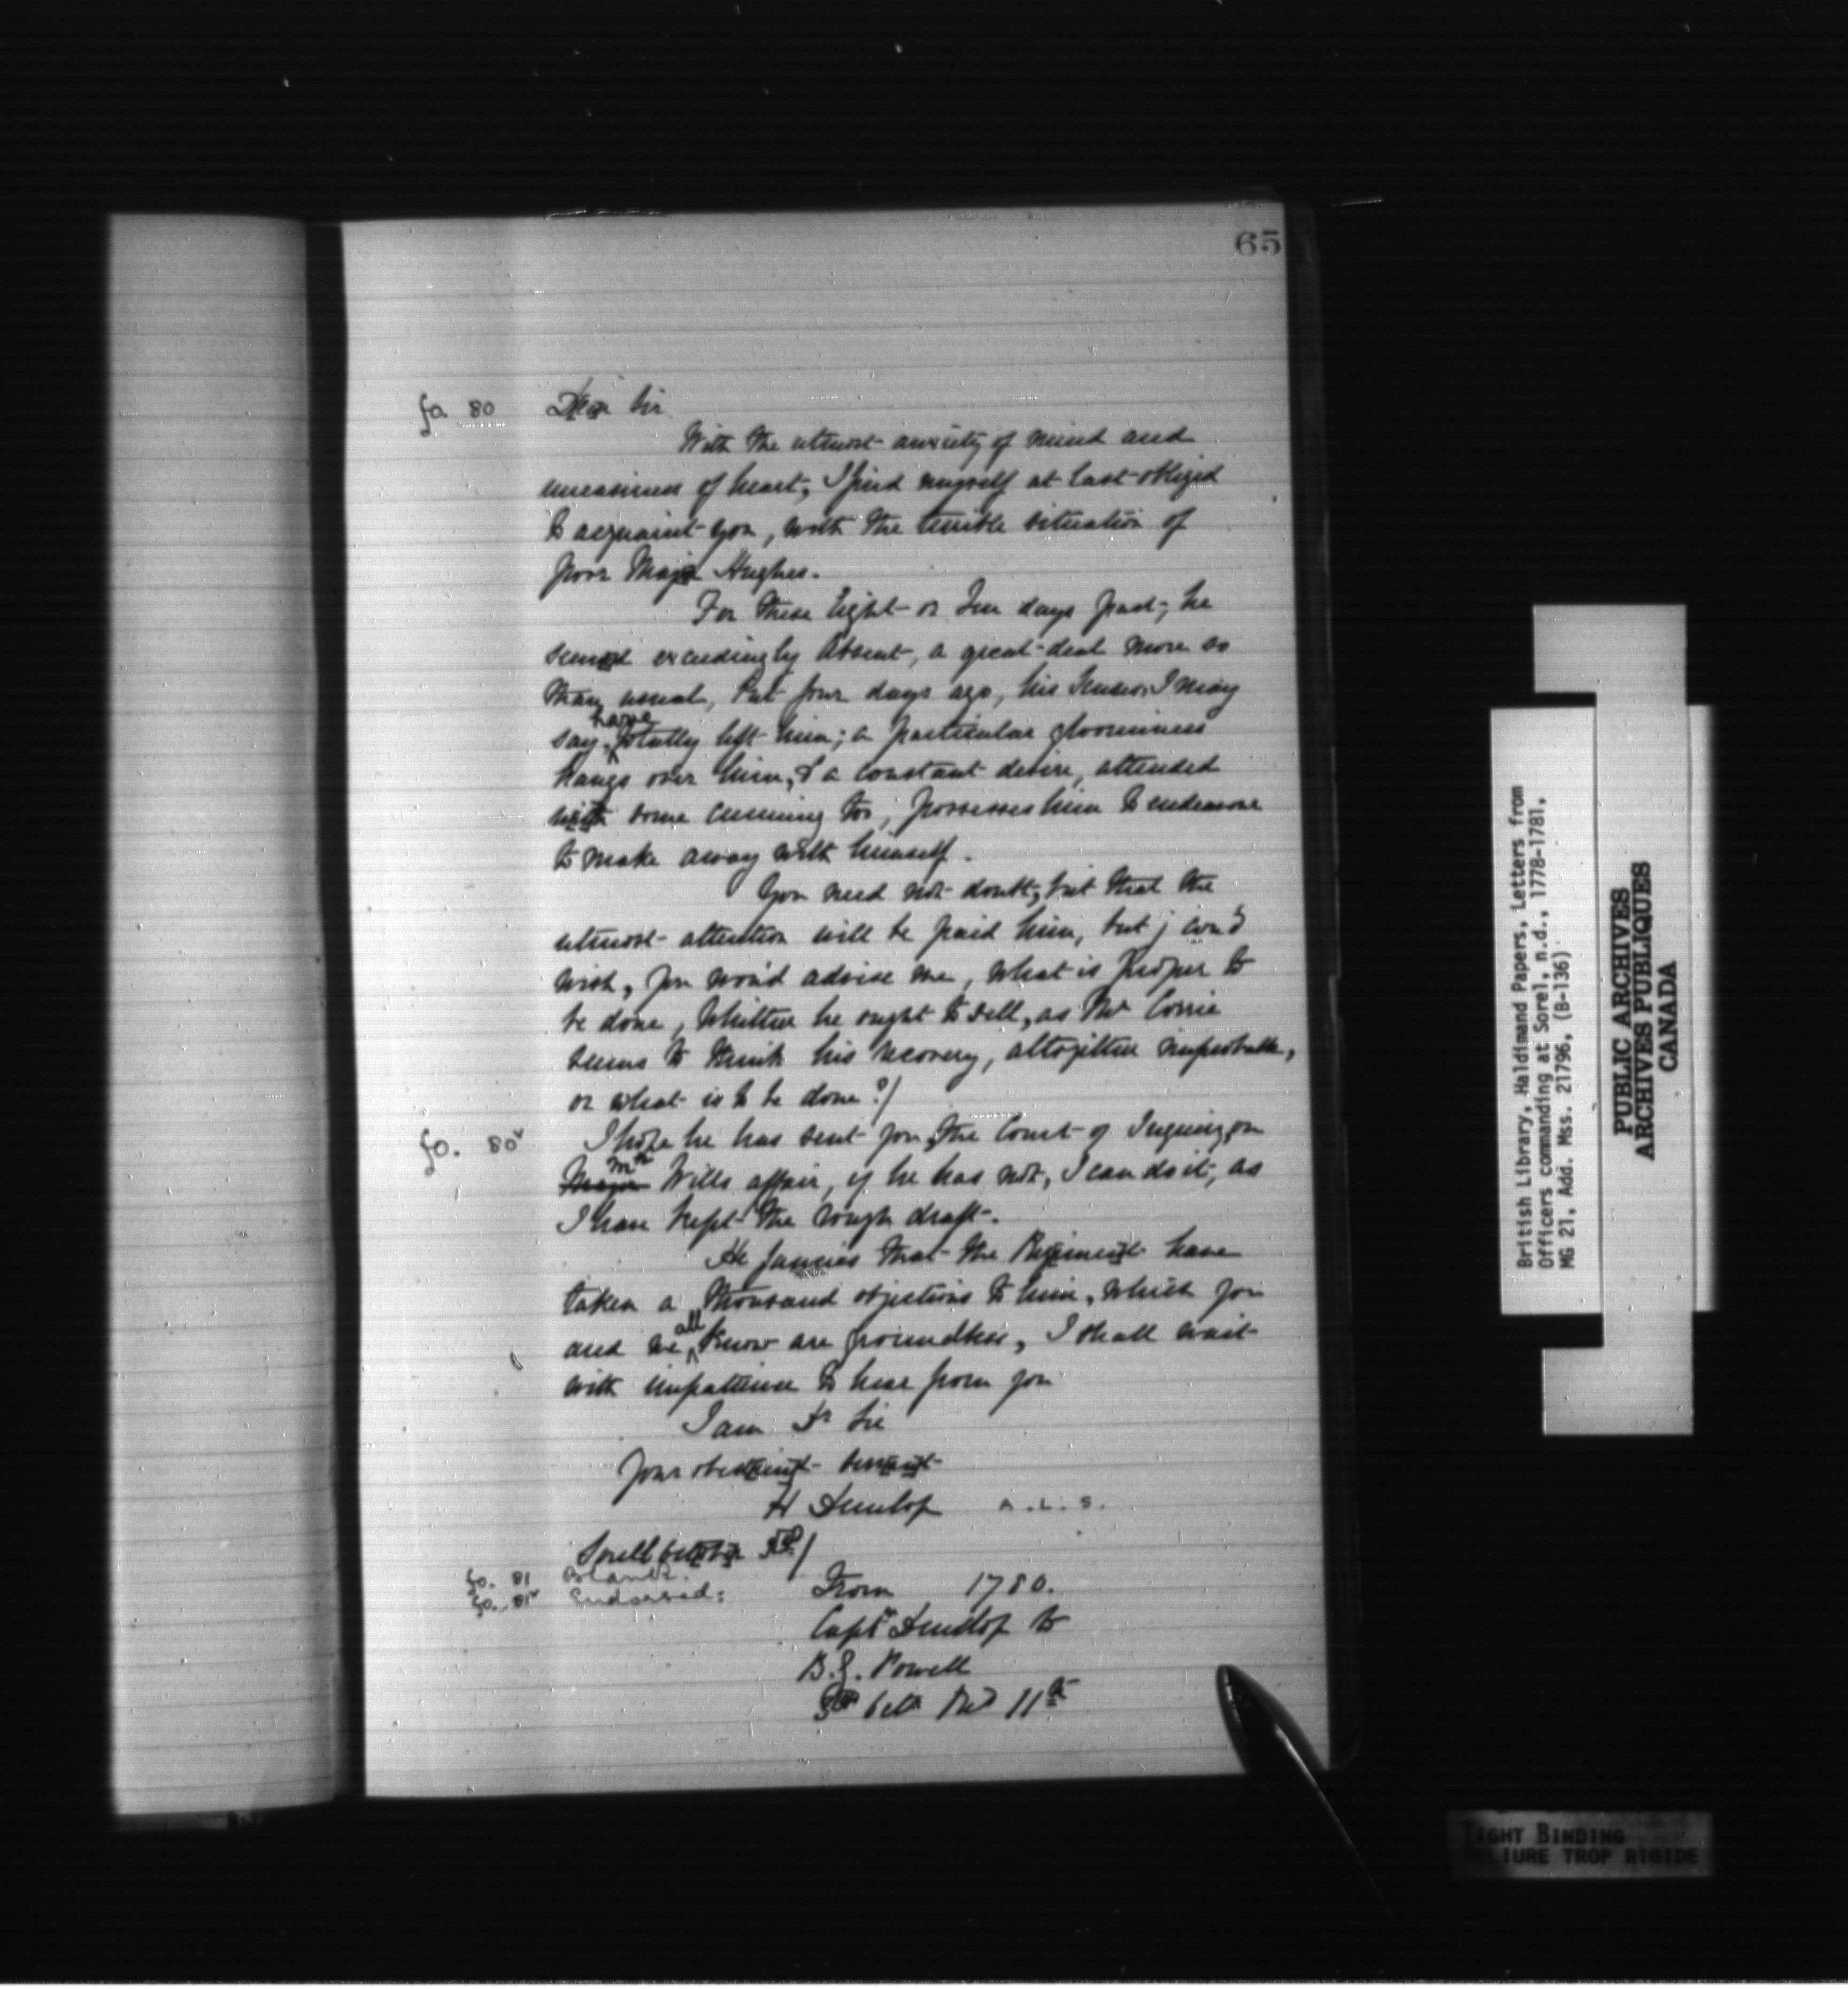 65
fo. 80 Dear Sir
With the utmost anxiety of mind and
uneasiness of heart, I find myself at last obliged
to acquaint you, with the terrible situation of
poor Major Hughes.
For these Eight or Ten days past, he
seemed exceedingly Absent, a great deal more so
than usual, but four days ago, his Senses, I may
say, have totally left him; a particular gloominess
hangs over him, & a constant desire, attended
with some cunning too, possesses him to endeavor
to make away with himself.
You need not doubt, but that the
utmost attention will be paid him, but j cou'd
wish, you wou'd advise me, what is proper to
be done, Whither he ought to sell, as Mr Corrie
seems to think his recovery, altogither improbable,
or what is to be done?/
fo. 80v I hope he has sent you, the Court of Inquiry, on
Major Mr Wills affair, if he has not, I can do it, as
I have kept the rough draft.
He fancies that the Regiment have
taken a thousand objections to him, which you
and we all know are groundless, I shall wait
with impatience to hear from you
I am Dr Sir
your obedient servant
H Dunlop A.L.S.
Sorell October 5th/
fo. 81 Blank.
fo. 81v Endorsed: From 1780.
Captn Dunlop to
B.G. Powell
5th Octr Red 11th
British Library, Haldimand Papers, Letters from
Officers commanding at Sorel, n.d., 1778-1781,
MG 21, Add. Mss. 21796, (B-136)
PUBLIC ARCHIVES
ARCHIVES PUBLIQUES
CANADA
TIGHT BINDING
RELIURE TROP RIGIDE